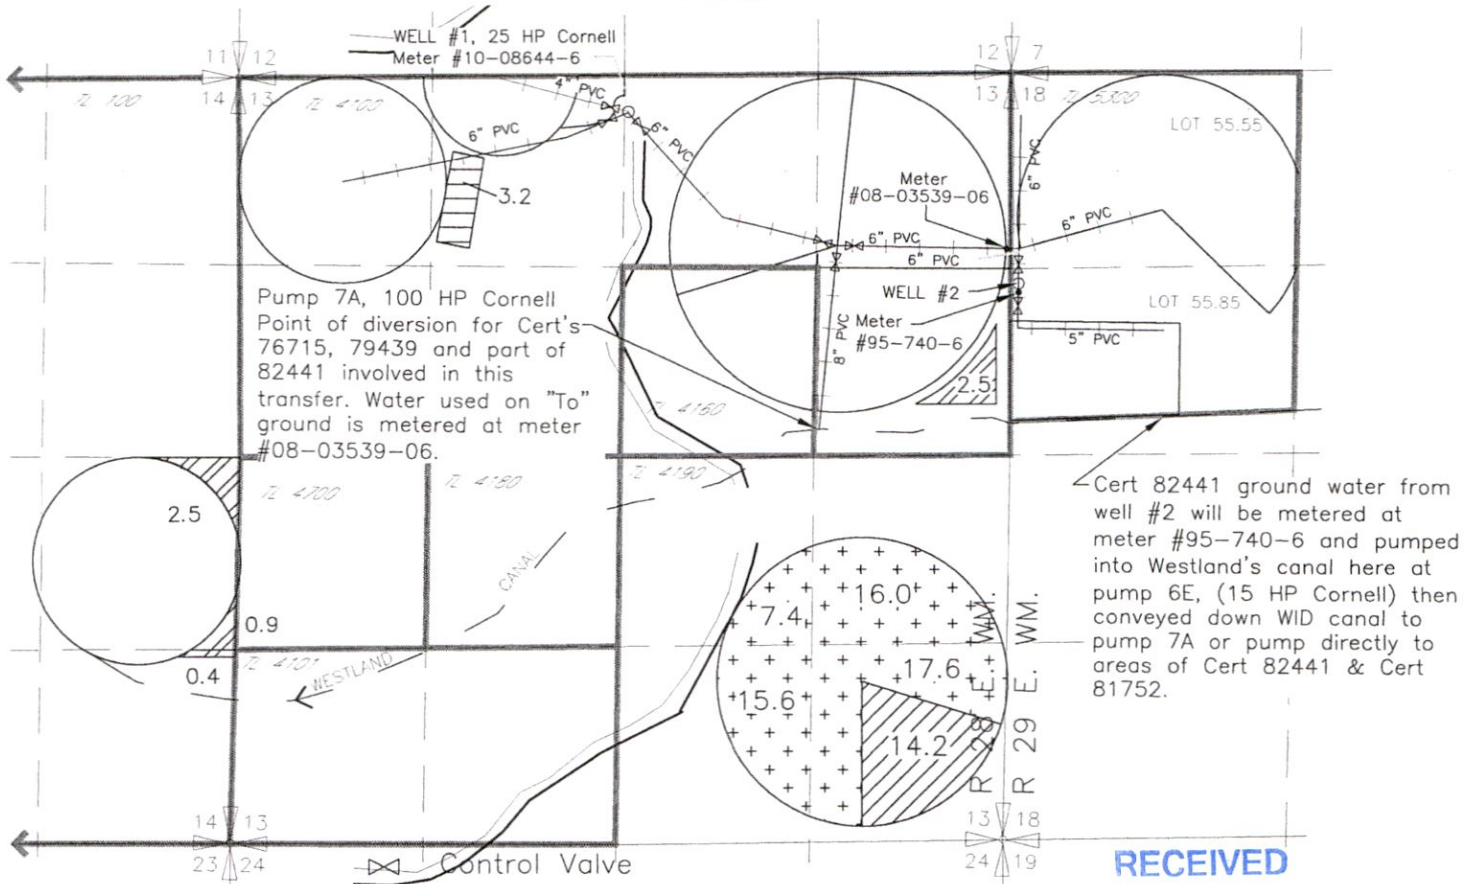 WELL #1, 25 HP Cornell
Meter #10-08644-6
11 12
14 13
12 7
13 18
TL 100
TL 4100
TL 5300
LOT 55.55
4" PVC
6" PVC
6" PVC
6" PVC
6" PVC
3.2
Meter
#08-03539-06
6" PVC
6" PVC
WELL #2
Meter
#95-740-6
8" PVC
LOT 55.85
5" PVC
2.5
Pump 7A, 100 HP Cornell
Point of diversion for Cert's
76715, 79439 and part of
82441 involved in this
transfer. Water used on "To"
ground is metered at meter
#08-03539-06.
TL 4160
TL 4700
TL 4180
TL 4190
2.5
CANAL
0.9
0.4
TL 4101
WESTLAND
Cert 82441 ground water from
well #2 will be metered at
meter #95-740-6 and pumped
into Westland's canal here at
pump 6E, (15 HP Cornell) then
conveyed down WID canal to
pump 7A or pump directly to
areas of Cert 82441 & Cert
81752.
16.0
7.4
17.6
15.6
14.2
R 28 E. WM.
R 29 E. WM.
14 13
23 24
13 18
24 19
Control Valve
RECEIVED